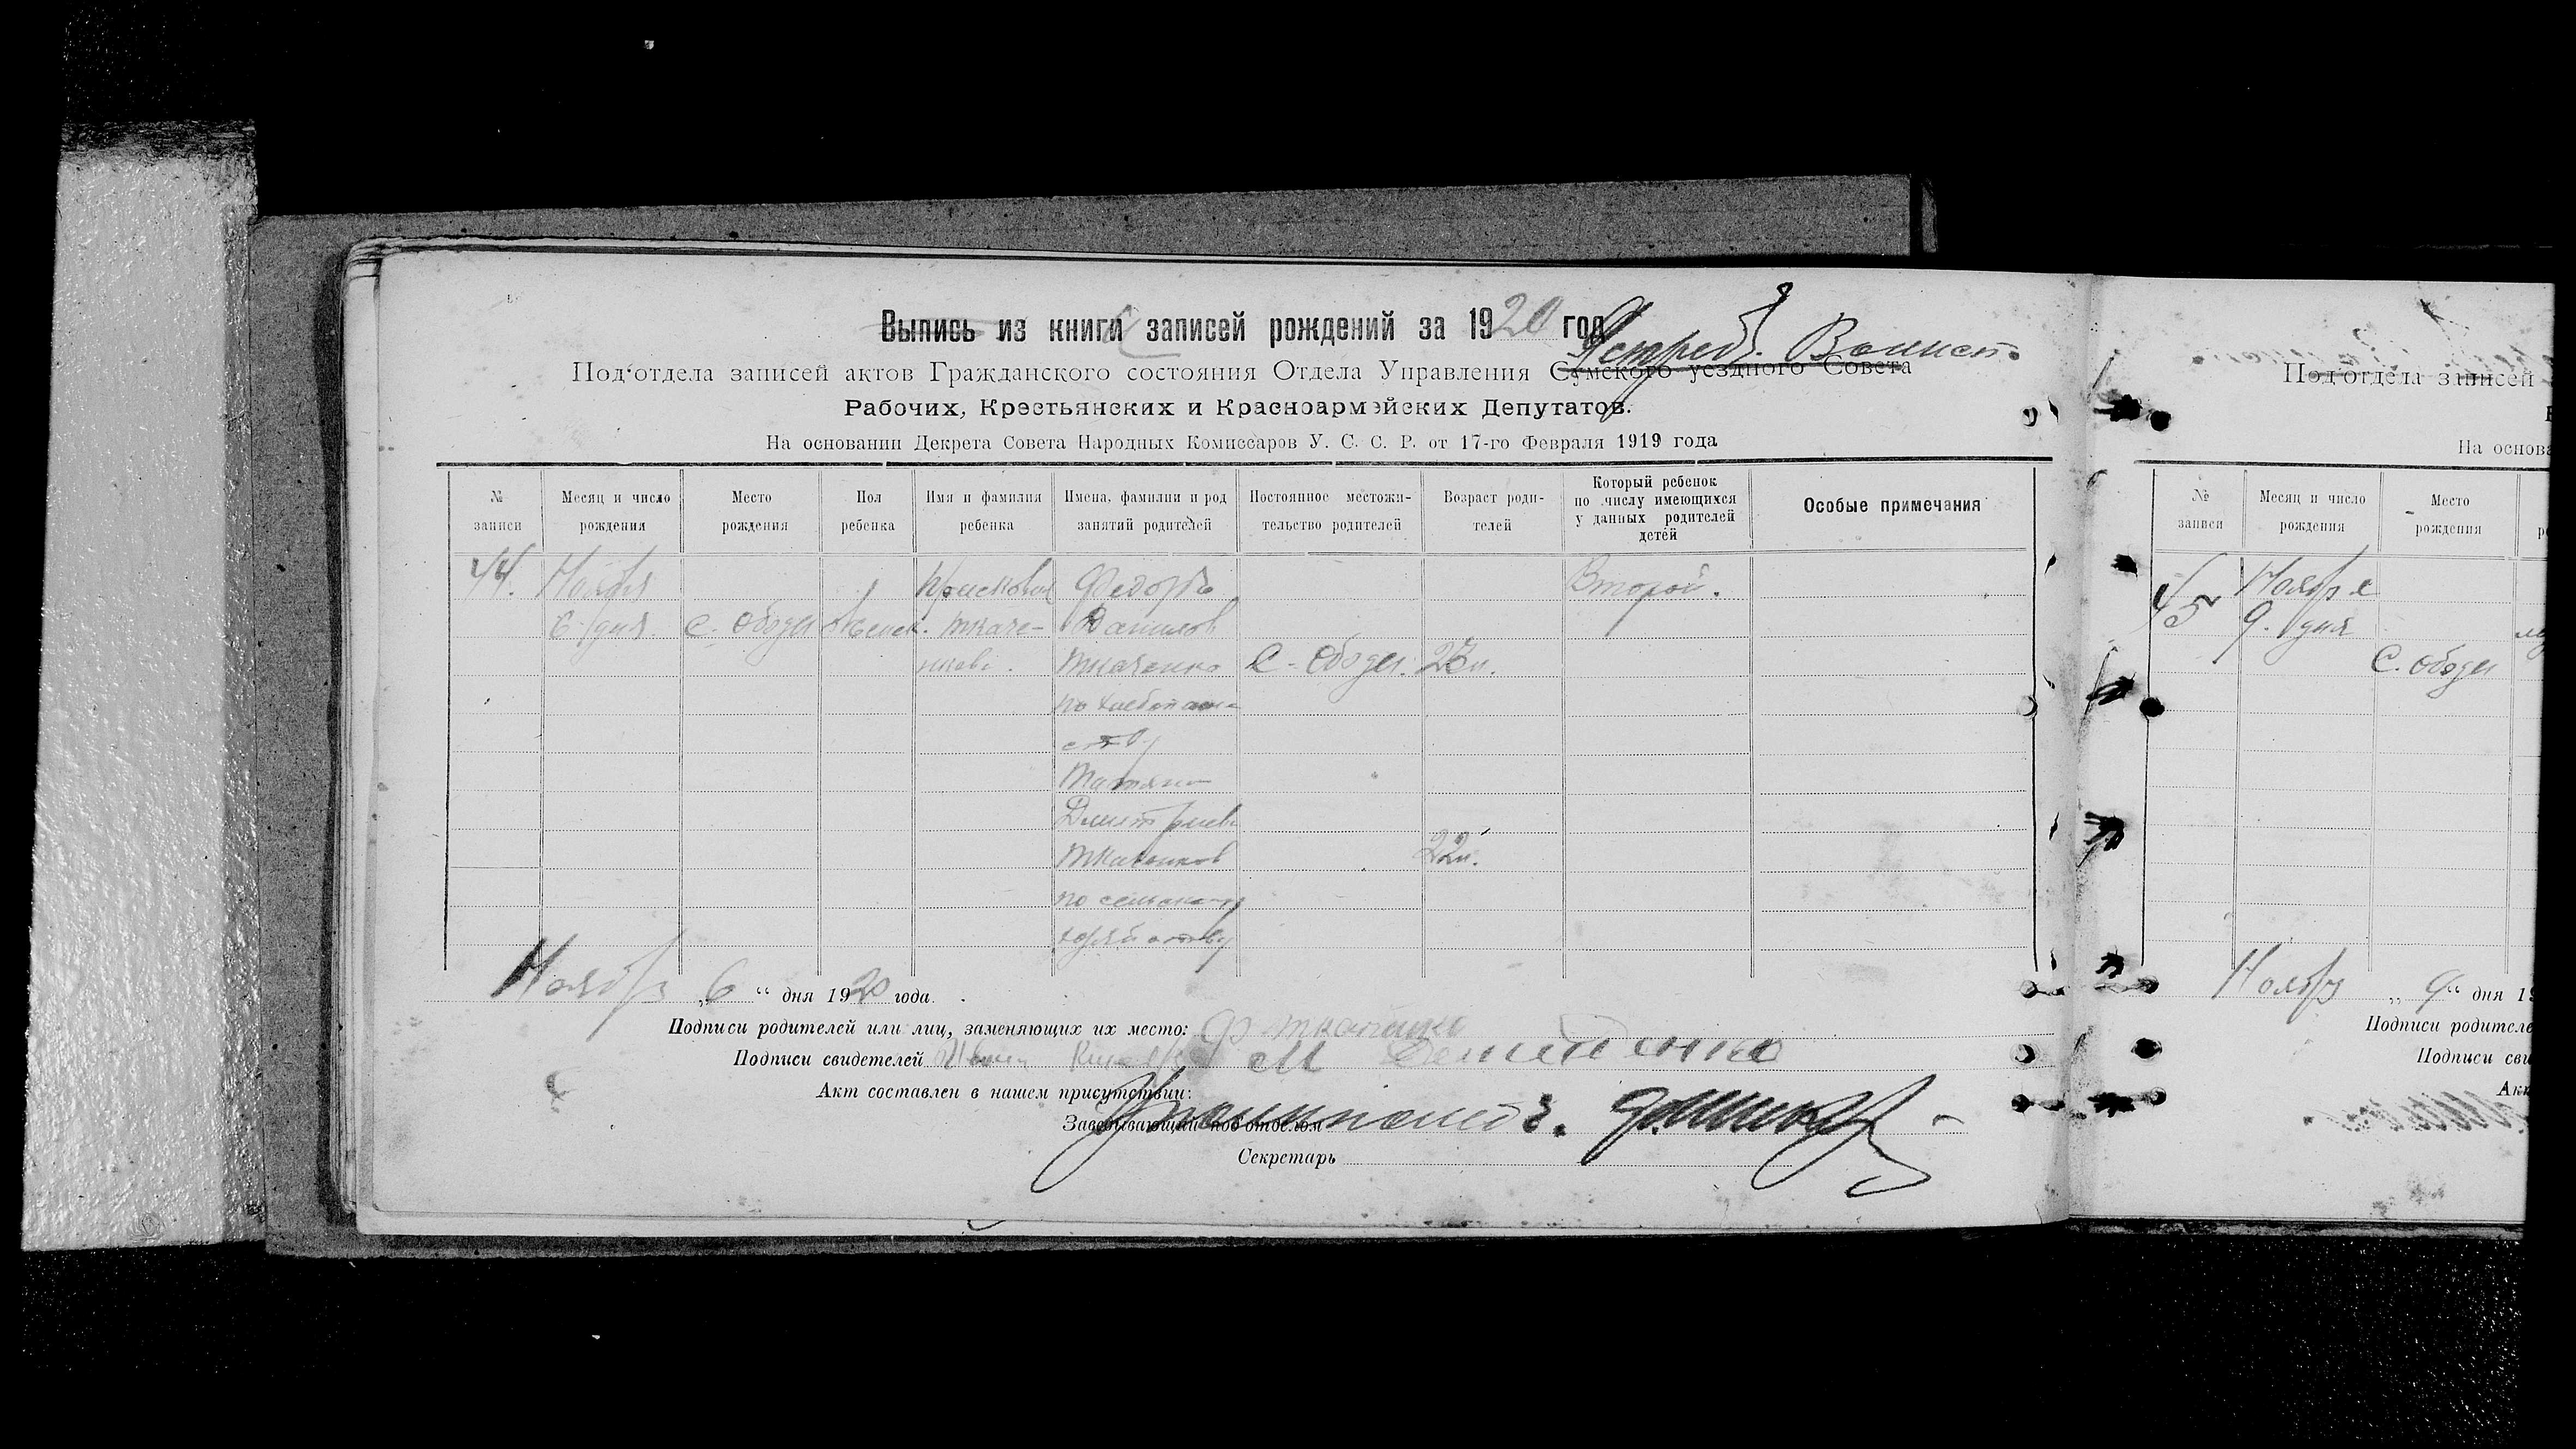 Выпись из книги записей рождений за 1920 год
Ястреб. Волисп.
Под'отдела записей актов Гражданского состояния Отдела Управления Сумского уездного Совета
Рабочих, Крестьянских и Красноармейских Депутатов.
На основании Декрета Совета Народных Комиссаров У. С. С. Р. от 17-го Февраля 1919 года
№ записи
Месяц и число рождения
Место рождения
Пол ребенка
Имя и фамилия ребенка
Имена, фамилии и род занятий родителей
Постоянное местожительство родителей
Возраст родителей
Который ребенок по числу имеющихся у данных родителей детей
Особые примечания
44. Ноября Федоръ Второй.
6 дня с. Ободы женск. Ткаче- Данилов
Ткаченко С. Ободы
по хлебопаше
ству
Татьяна
Дмитриев
Ткаченков 22л.
по сельском
хозяйству
Ноября „6“ дня 1920 года.
Подписи родителей или лиц, заменяющих их место: Ф Ткаченко
Подписи свидетелей М Демиденко
Акт составлен в нашем присутствии:
Заведывающий под'отделом
Секретарь
Под'отдела записей
На основа
№ записи
Месяц и число рождения
Место рождения
45 Ноября
9. дня
С. Ободы
Ноября „9“ дня 19
Подписи родителе
Подписи сви
Ак